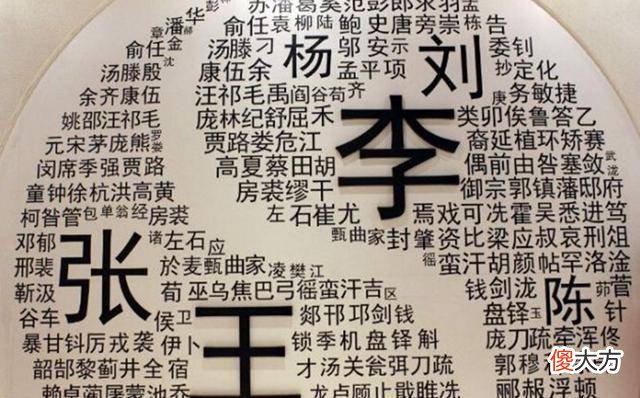 苏潘葛奚范彭郎
华
潘
俞任袁柳陆鲍史唐旁崇栋告
俞任金
汤滕刁
杨
邬安示
刘
委钊
汤滕殷
沈
康伍余
孟平项
抄定化
余齐康伍
汪祁毛禹阎谷荀齐
庚务敏捷
姚邵汪祁毛
庞林纪舒屈禾
李
类卯俟鲁答乙
元宋茅庞熊
贾路娄危江
裔延植环矫赛
闵席季强贾路
高夏蔡田胡
偶前由昝塞敛
武
泷
童钟徐杭洪高黄
房裘缪干
御宗郭镇藩邸府
柯昝管包单翁经房裘
左石崔尤
焉戏可冼霍吴悉进笃
邓郁
张
诸左石应
甄曲家封肇资比梁应叔哀刑俎
邢裴
於麦甄曲家凌樊江
徭蛮汗胡颜帖罗洛淦
靳汲
荀巫乌焦巴弓徭蛮汗吉区
钱剑泷
陈
茆菅
谷车侯卫
王
郯邗邛剑钱
盘铎玉
针
暴甘钭厉戎袭伊卜
锁季机盘铎斛
庞刀疏牵浑佟
韶郜黎蓟井全宿
才汤关瓮弭刀疏
郭穆
赖卓蔺屠蒙池乔
龙卢顾止戢睢冼
郦郝浮顿
傻大方